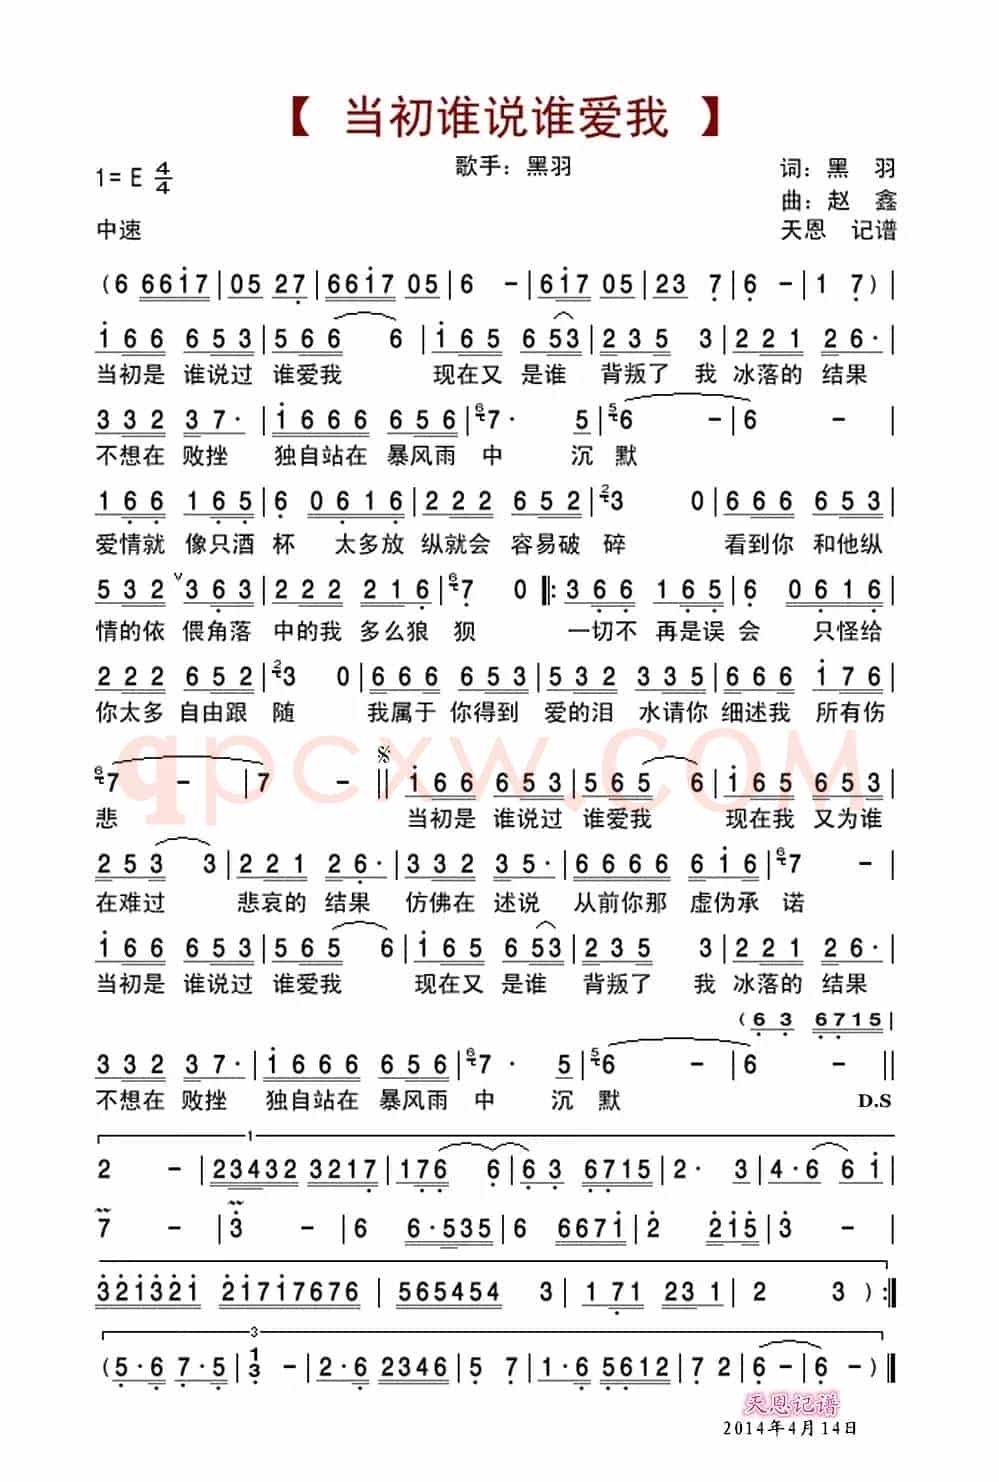 【 当初谁说谁爱我 】
1= E 4/4 歌手：黑羽 词：黑 羽
曲：赵 鑫
中速 天恩 记谱
( 6 6 6 i 7 | 0 5 2 7 | 6 6 i 7 0 5 | 6 - | 6 i 7 0 5 | 2 3 7 | 6 - | 1 7 ) |
i 6 6 6 5 3 | 5 6 6 6 | i 6 5 6 5 3 | 2 3 5 3 | 2 2 1 2 6 · |
当初是 谁说过 谁爱我 现在又 是谁 背叛了 我 冰落的 结果
3 3 2 3 7 · | i 6 6 6 6 5 6 | 6 7 · 5 | 5 6 - | 6 - |
不想在 败挫 独自站在 暴风雨 中 沉 默
1 6 6 1 6 5 | 6 0 6 1 6 | 2 2 2 6 5 2 | 2 3 0 | 6 6 6 6 5 3 |
爱情就 像只酒 杯 太多放 纵就会 容易破 碎 看到你 和他纵
5 3 2 3 6 3 | 2 2 2 2 1 6 | 6 7 0 |: 3 6 6 1 6 5 | 6 0 6 1 6 |
情的依 偎角落 中的我 多么狼 狈 一切不 再是误 会 只怪给
2 2 2 6 5 2 | 2 3 0 | 6 6 6 6 5 3 | 5 3 2 5 3 2 | 6 6 6 i 7 6 |
你太多 自由跟 随 我属于 你得到 爱的泪 水请你 细述我 所有伤
qpcxw.com
6 7 - | 7 - || i 6 6 6 5 3 | 5 6 5 6 | i 6 6 6 5 3 |
悲 当初是 谁说过 谁爱我 现在我 又为谁
2 5 3 3 | 2 2 1 2 6 · | 3 3 2 5 3 · | 6 6 6 6 6 i 6 | 6 7 - |
在难过 悲哀的 结果 仿佛在 述说 从前你那 虚伪承 诺
i 6 6 6 5 3 | 5 6 5 6 | i 6 5 6 5 3 | 2 3 5 3 | 2 2 1 2 6 · |
当初是 谁说过 谁爱我 现在又 是谁 背叛了 我 冰落的 结果
( 6 3 6 7 1 5 |
3 3 2 3 7 · | i 6 6 6 6 5 6 | 6 7 · 5 | 5 6 - | 6 - ||
不想在 败挫 独自站在 暴风雨 中 沉 默 D.S
1
2 - | 2 3 4 3 2 3 2 1 7 | 1 7 6 6 | 6 3 6 7 1 5 | 2 · 3 | 4 · 6 6 i |
7 - | 3 - | 6 6 · 5 3 5 | 6 6 6 7 i | 2 2 i 5 | 3 - |
3 2 i 3 2 i 2 i 7 i 7 6 7 6 | 5 6 5 4 5 4 3 | 1 7 1 2 3 1 | 2 3 ) :|
3
( 5 · 6 7 · 5 | 1 3 - | 2 · 6 2 3 4 6 | 5 7 | 1 · 6 5 6 1 2 | 7 2 | 6 - | 6 - ) |
天恩记谱
2014年4月14日